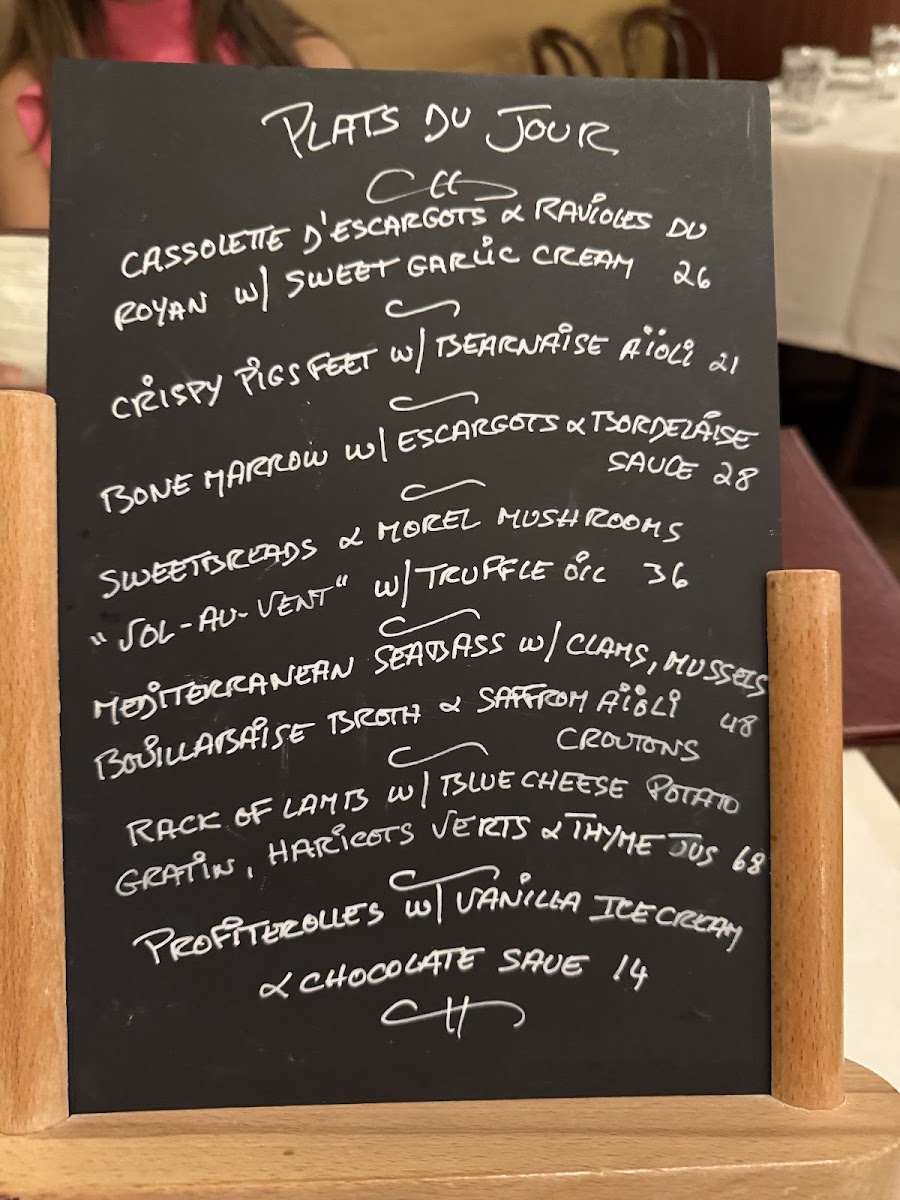 PLATS DU JOUR
CASSOLETTE D'ESCARGOTS & RAVIOLES DU
ROYAN W/ SWEET GARLIC CREAM 26
CRISPY PIGS FEET W/ BEARNAISE AÏOLI 21
BONE MARROW W/ ESCARGOTS & BORDELAISE
SAUCE 28
SWEETBREADS & MOREL MUSHROOMS
"VOL-AU-VENT" W/ TRUFFLE OIL 36
MEDITERRANEAN SEABASS W/ CLAMS, MUSSELS
BOUILLABAISE BROTH & SAFFROM AÏOLI 48
CROUTONS
RACK OF LAMB W/ BLUE CHEESE POTATO
GRATIN, HARICOTS VERTS & THYME JUS 68
PROFITEROLLES W/ VANILLA ICE CREAM
& CHOCOLATE SAUE 14